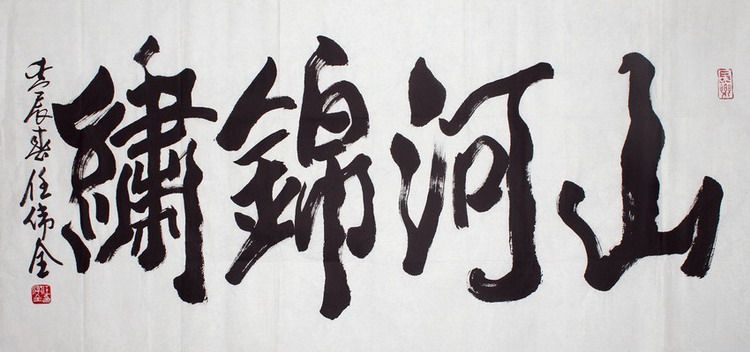 山河錦繡
壬辰春任伟全